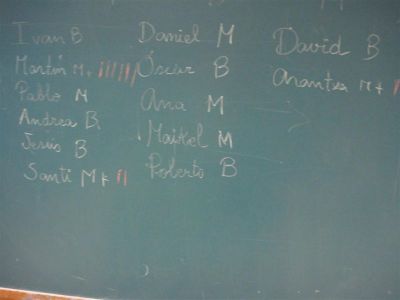 Ivan B
Martín M +
Pablo M
Andrea B
Jesús B
Santi M +
Daniel M
Óscar B
Ana M
Maikel M
Roberto B
David B
Arantxa M +